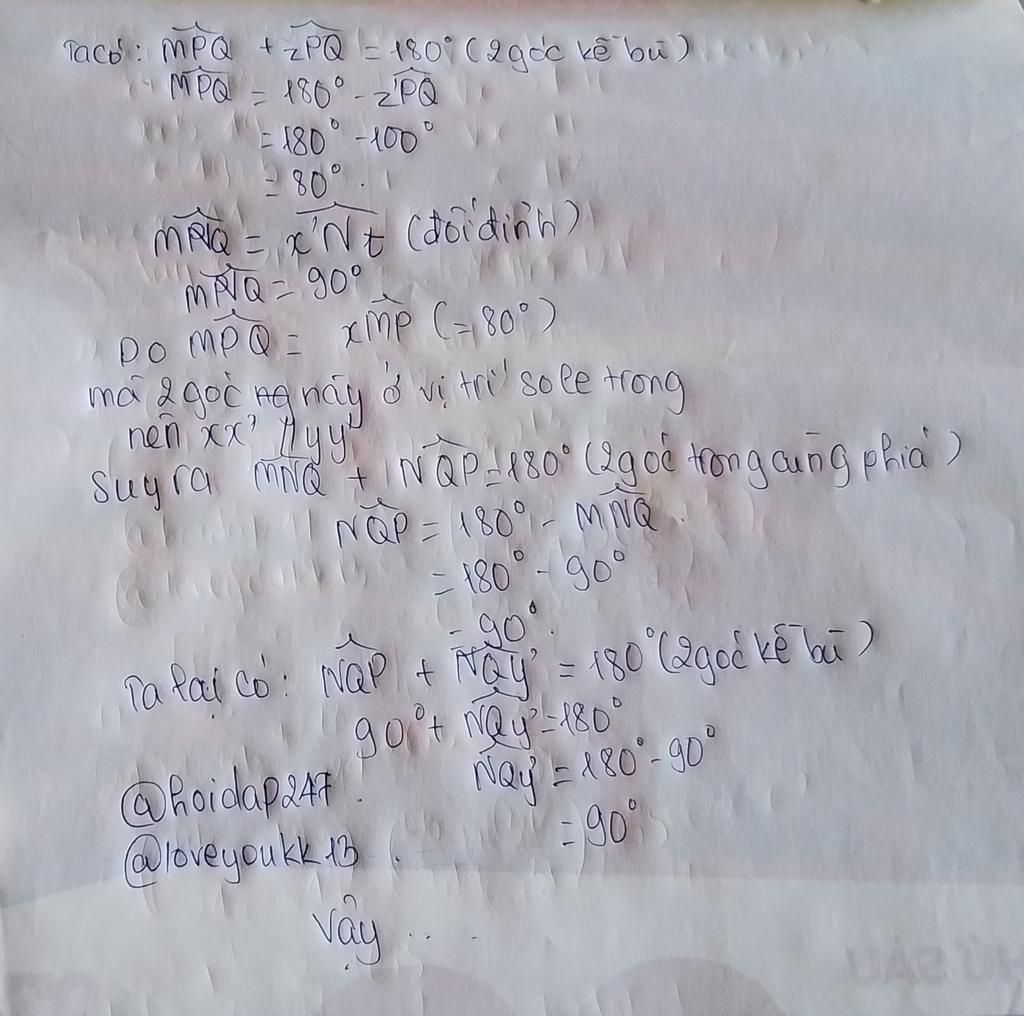 Ta có: MPQ + zPQ = 180° (2 góc kề bù)
MPQ = 180° - zPQ
= 180° - 100°
= 80°.
MNQ = x'Nt (đối đỉnh)
MNQ = 90°
Do MPQ = xMP (= 80°)
mà 2 góc này ở vị trí so le trong
nên xx' // yy'
Suy ra MNQ + NQP = 180° (2 góc trong cùng phía)
NQP = 180° - MNQ
= 180° - 90°
= 90°.
Ta lại có: NQP + NQy' = 180° (2 góc kề bù)
90° + NQy' = 180°
NQy' = 180° - 90°
= 90°
@hoidap247
@loveyoukk13
Vậy ...